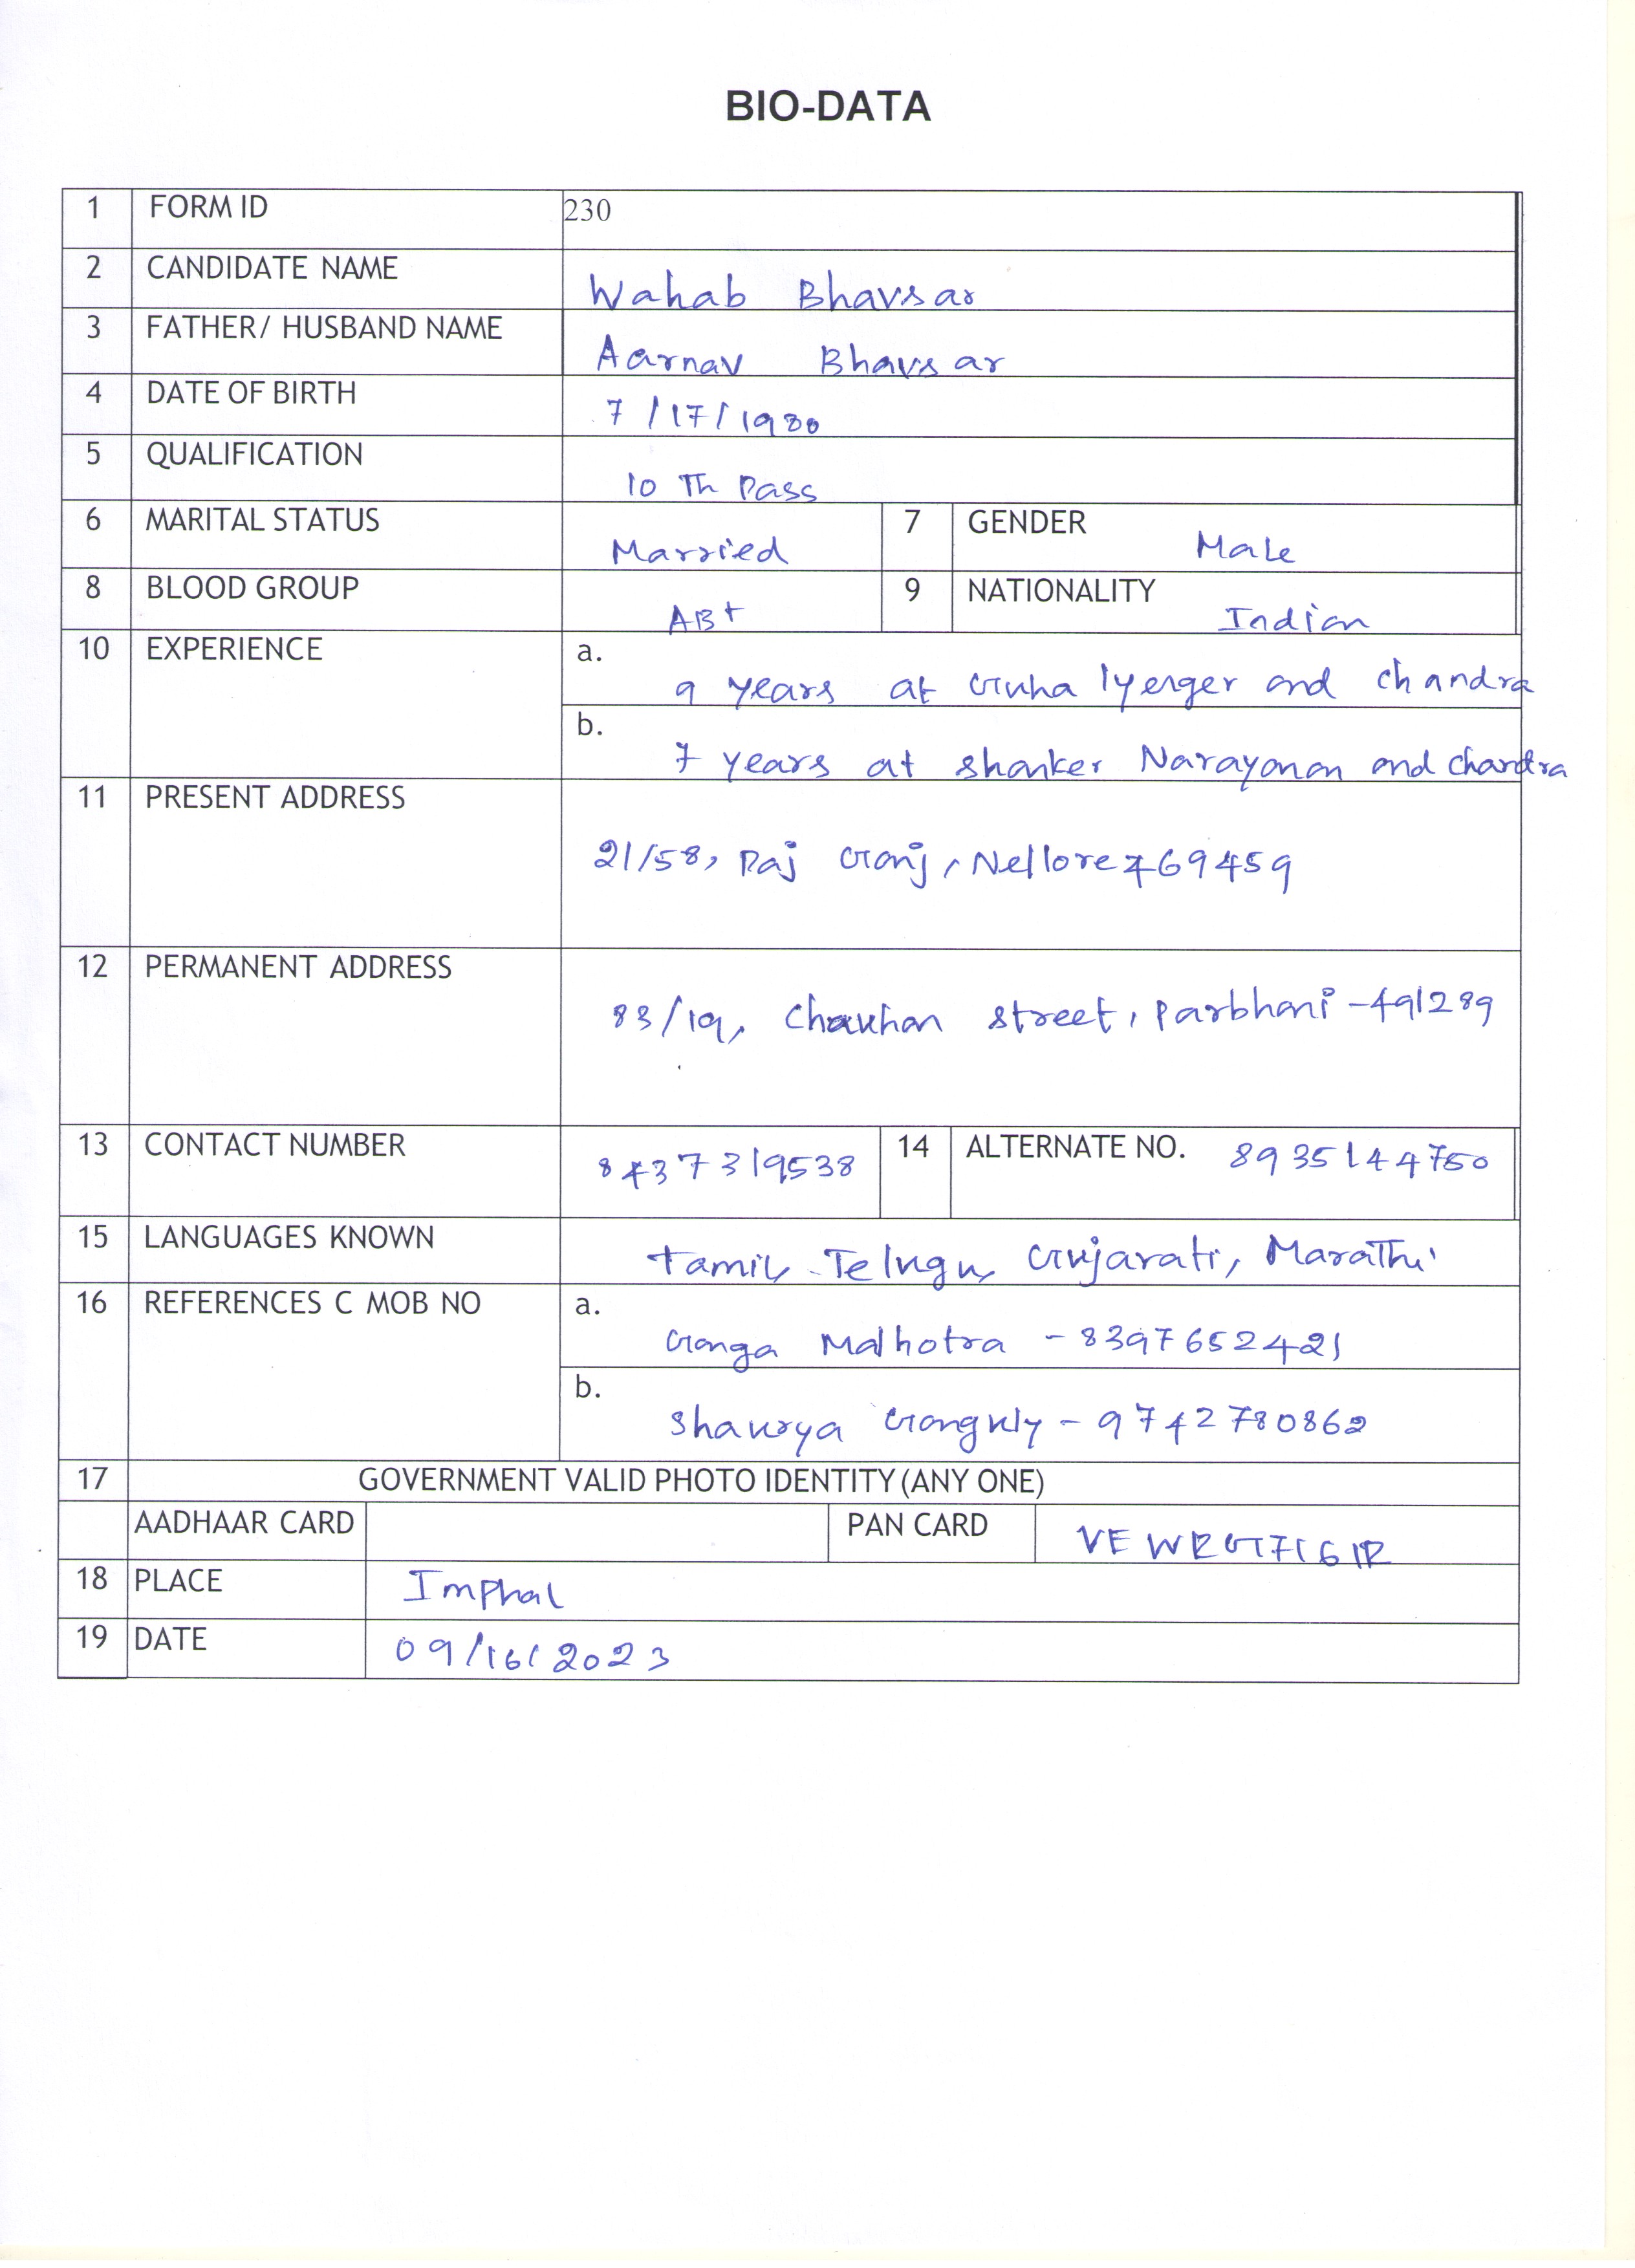 BIO-DATA
1 FORM ID 230
2 CANDIDATE NAME Wahab Bhavsar
3 FATHER/ HUSBAND NAME Aarnav Bhavsar
4 DATE OF BIRTH 7/17/1980
5 QUALIFICATION 10 Th Pass
6 MARITAL STATUS Married 7 GENDER Male
8 BLOOD GROUP AB+ 9 NATIONALITY Indian
10 EXPERIENCE a. 9 years at Guha Iyenger and chandra
b. 7 years at shanker Narayanan and chandra
11 PRESENT ADDRESS
21/58, Raj Ganj, Nellore 769459
12 PERMANENT ADDRESS
83/19, Chauhan street, Parbhani - 491289
13 CONTACT NUMBER 8437319538 14 ALTERNATE NO. 8935144750
15 LANGUAGES KNOWN Tamil, Telugu, Gujarati, Marathi
16 REFERENCES C MOB NO a. Ganga Malhotra - 8397652421
b. Shaurya Ganguly - 9742780862
17 GOVERNMENT VALID PHOTO IDENTITY (ANY ONE)
AADHAAR CARD PAN CARD
18 PLACE Imphal
19 DATE 09/16/2023